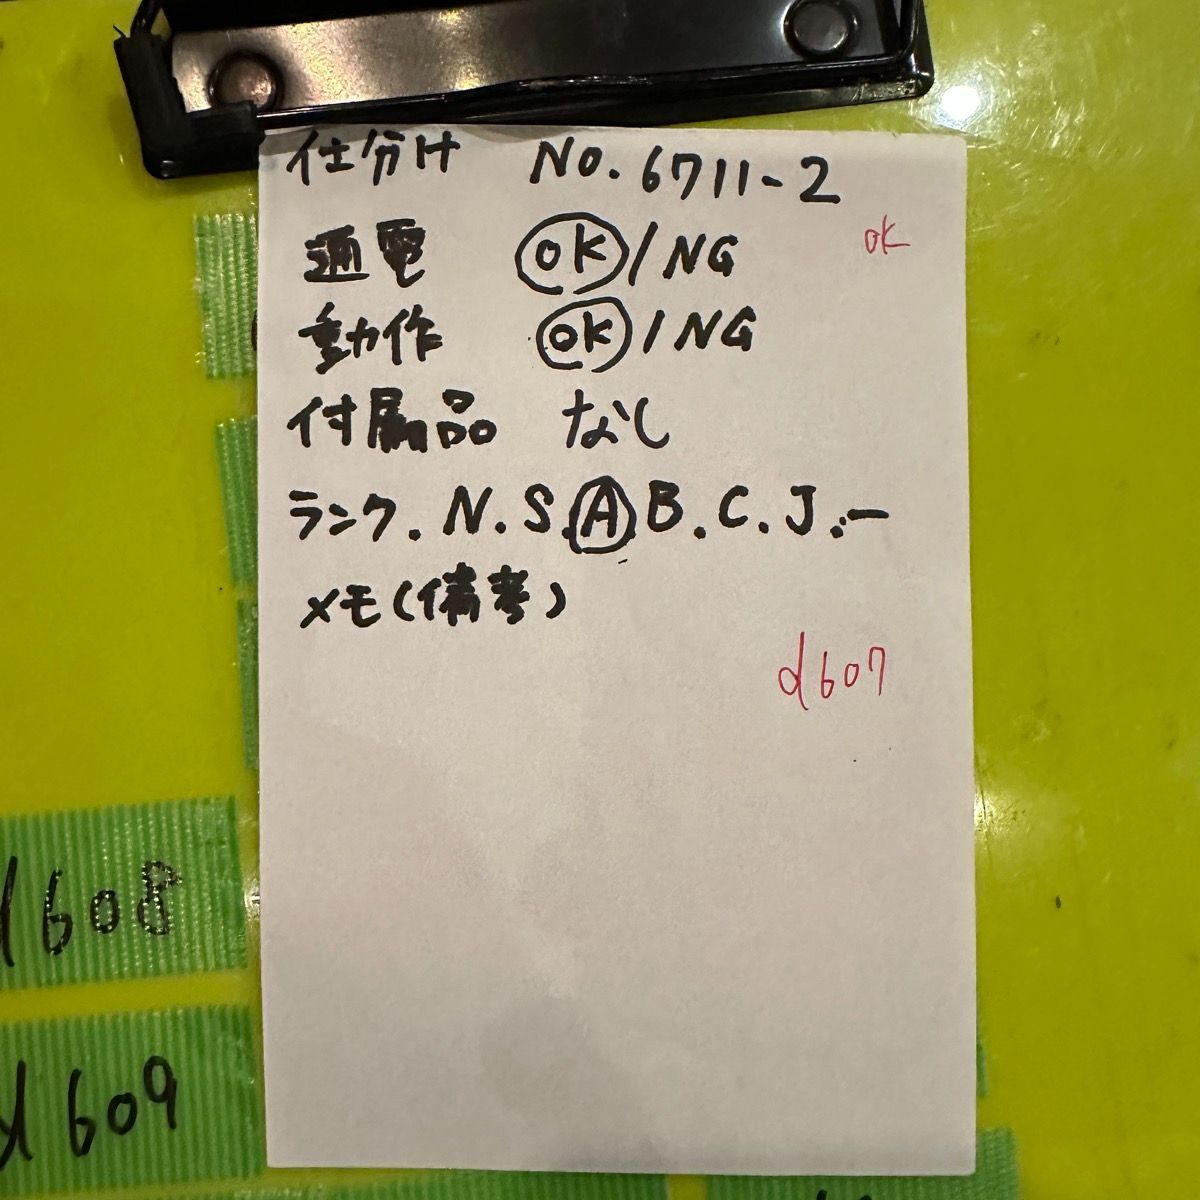 仕分け No.6711-2
OK
通電 OK/NG
動作 OK/NG
付属品 なし
ランク.N.S.A.B.C.J.ー
メモ(備考)
d607
d608
d609